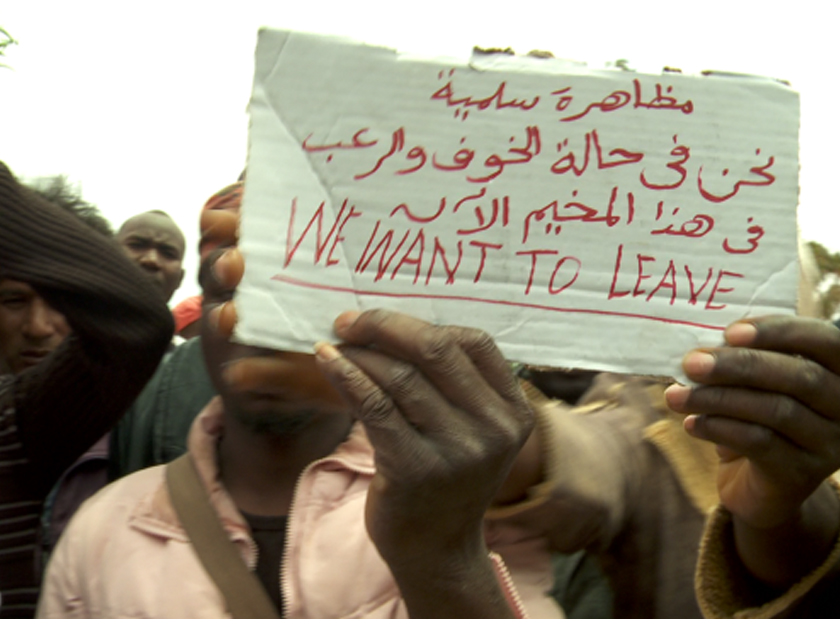 مظاهرة سلمية
نحن في حالة الخوف والرعب
في هذا المخيم الآن
WE WANT TO LEAVE